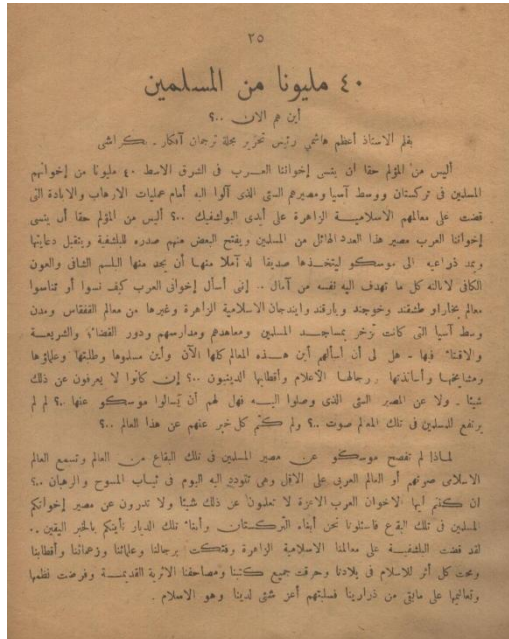 ٣٥
٤٠ مليونا من المسلمين
أين هم الان ..؟
بقلم الاستاذ أعظم هاشمي رئيس تحرير مجلة ترجمان أفكار . كراشى
أليس من المؤلم حقا أن ينسى إخواننا العرب فى الشرق الاوسط ٤٠ مليونا من إخوانهم
المسلمين فى تركستان ووسط آسيا ومصيرهم السىء الذى آلوا اليه أمام عمليات الارهاب والابادة التى
قضت على معالمهم الاسلامية الزاهرة على أيدى البولشفيك ..؟ أليس من المؤلم حقا أن ينسى
إخواننا العرب مصير هذا العدد الهائل من المسلمين ويفتح البعض منهم صدره للبلشفية ويتقبل دعايتها
ويمد ذراعيه الى موسكو ليتخذها صديقا له آملا منها أن يجد منها البلسم الشافى والعون
الكافى لانالته كل ما تهدف اليه نفسه من آمال .. إننى أسأل إخوانى العرب كيف نسوا أو تناسوا
معالم بخارا و طشقند وخوجند ويارقند وانديجان الاسلامية الزاهرة وغيرها من معالم القفقاس ومدن
وسط آسيا التى كانت تزخر بمساجد المسلمين ومعاهدهم ومدارسهم ودور القضاء والشريعة
والافتاء فيها . هل لى أن أسألهم أين هذه المعالم كلها الآن وأين مسلموها وطلبتها وعلماؤها
ومشايخها وأساتذتها . ورجالها الاعلام وأقطابها الدينيون ..؟ إن كانوا لا يعرفون عن ذلك
شيئا . ولا عن المصير السىء الذى وصلوا اليه فهل لهم أن يسألوا موسكو عنها ..؟ لم لم
يرتفع للمسلمين فى تلك المعالم صوت ..؟ ولم كتم كل خبر عنهم عن هذا العالم ..؟
لماذا لم تفصح موسكو عن مصير المسلمين فى تلك البقاع من العالم وتسمع العالم
الاسلامى صوتهم أو العالم العربى على الاقل وهى تتودد اليه اليوم فى ثياب المسوح والرهبان ..؟
ان كنتم أيها الاخوان العرب الاعزة لا تعلمون عن ذلك شيئا ولا تدرون عن مصير إخوانكم
المسلمين فى تلك البقع فاسئلونا نحن أبناء التركستان وأبناء تلك الديار نأتيكم بالخبر اليقين ..
لقد قضت البلشفية على معالمنا الاسلامية الزاهرة وفتكت برجالنا وعلمائنا وزعمائنا وأقطابنا
ومحت كل أثر للاسلام فى بلادنا وحرقت جميع كتبنا ومصاحفنا الاثرية القديمة وفرضت نظمها
وتعاليمها على مابقى من ذرارينا فسلبتهم أعز شىء لدينا وهو الاسلام .